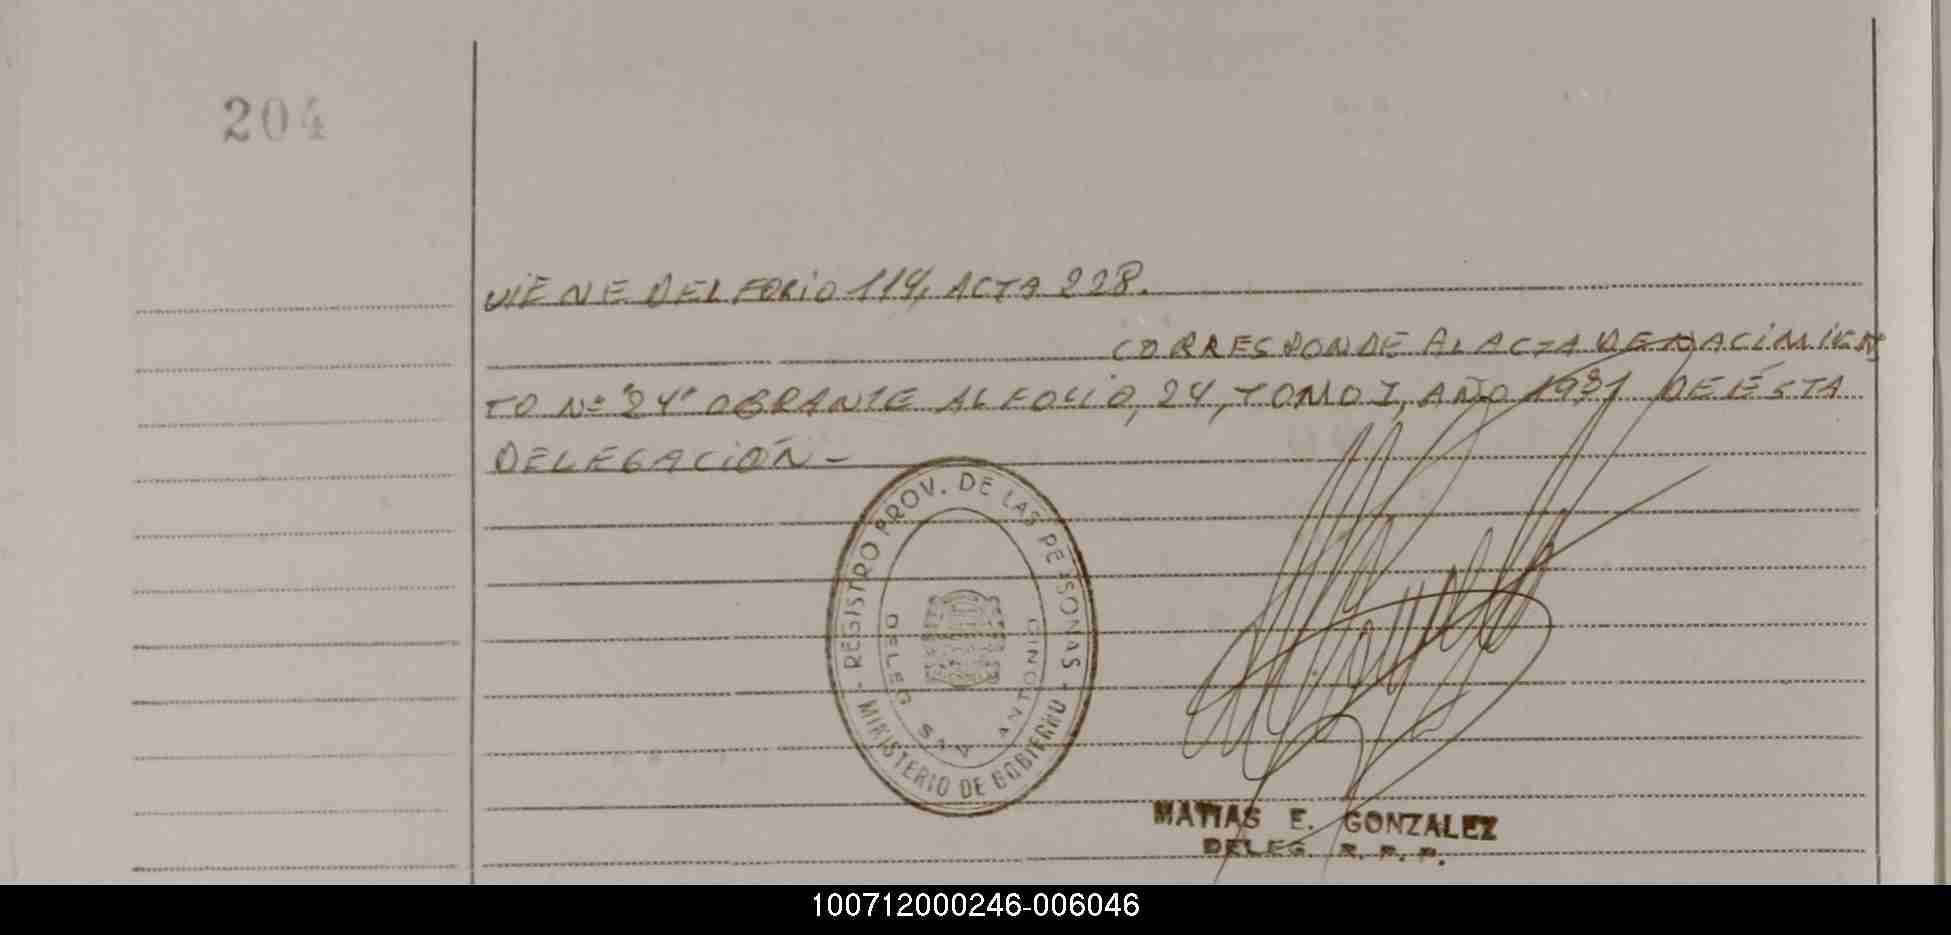 204
VIENE DEL FOLIO 114, ACTA 228.
CORRESPONDE AL ACTA DE NACIMIEN
TO Nº "24" OBRANTE AL FOLIO, 24, TOMO I, AÑO 1931 DE ÉSTA
DELEGACIÓN -
- REGISTRO PROV. DE LAS PERSONAS -
MINISTERIO DE GOBIERNO
DELEG SAN ANTONIO
MATIAS E. GONZALEZ
DELEG. R. P. P.
100712000246-006046